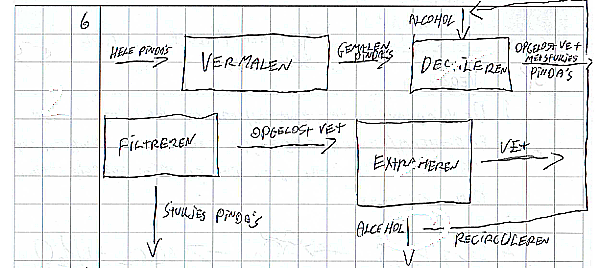 6
ALCOHOL
HELE PINDA'S
VERMALEN
GEMALEN
PINDA'S
OPGELOST VET
MET STUKJES
PINDA'S
FILTREREN
OPGELOST VET
EXTRAHEREN
VET
STUKJES PINDA'S
ALCOHOL
RECIRCULEREN